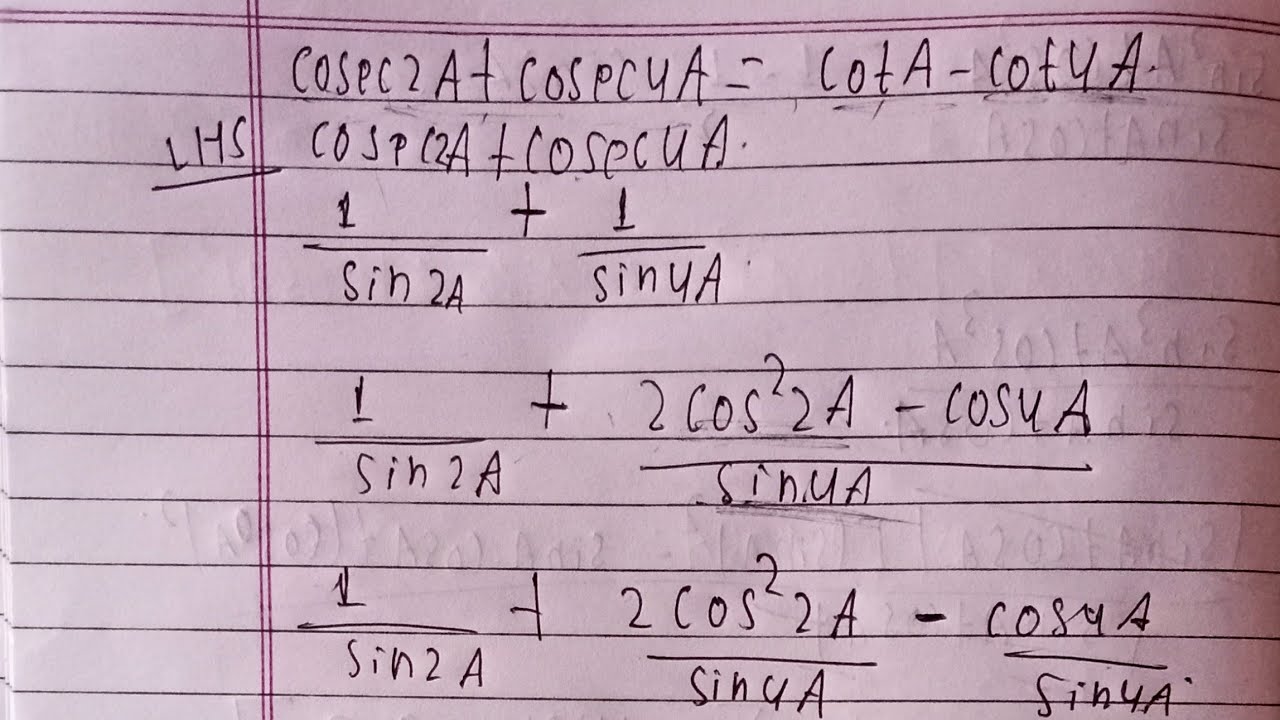 cosec2A + cosec4A = cotA - cot4A.
LHS cosec2A + cosec4A.
1 + 1
sin2A sin4A.
1 + 2cos²2A - cos4A
sin2A sin4A
1 + 2cos²2A - cos4A
sin2A sin4A sin4A.